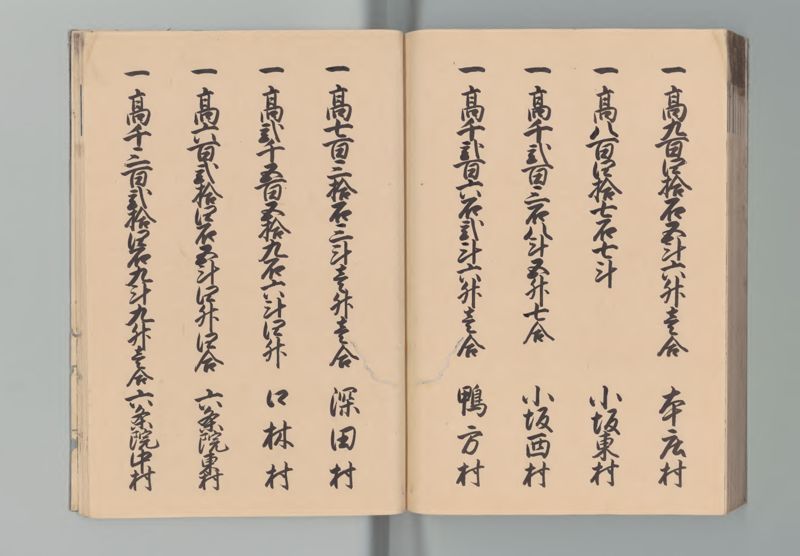 一 高九百四拾石五斗六升壱合 本庄村
一 高八百四拾七石七斗 小坂東村
一 高千弐百三石八斗五升七合 小坂西村
一 高千弐百六石弐斗六升壱合 鴨方村
一 高七百三拾石三斗壱升壱合 深田村
一 高弐千五百五拾九石六斗四升 口林村
一 高六百弐拾四石五斗四升四合 六条院東村
一 高千三百弐拾四石九斗九升壱合 六条院中村